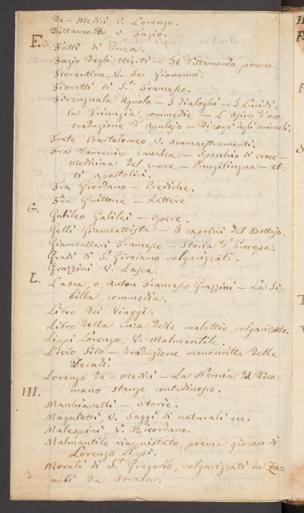 De-Medici V. Lorenzo.
Dittamondo V. Fazio.
F. Fatti di Enea.
Fazio degli Uberti - Il Dittamondo poema.
Fiorentino V. Ser Giovanni.
Fioretti di S. Francesco.
Firenzuola Agnolo - I dialoghi - I Lucidi e
la Trinuzia, commedie - L'Asino d'oro
traduzione d'Apulejo - Discorsi degli animali.
Frate Bartolomeo V. Ammaestramenti.
Fra Domenico Cavalca - Specchio di croce -
medicina del cuore - Pungilingua - At-
ti apostolici.
Fra Giordano - Prediche.
Fra Guittone - Lettere
G. Galileo Galilei - opere.
Gelli Giambattista - I capricci del Bottajo.
Giambullari Francesco - Storia d'Europa.
Gradi di S. Girolamo volgarizzati.
Grazzini V. Lasca.
L. Lasca, o, Anton Francesco Grazzini - La Si-
billa commedia.
Libro dei Viaggi.
Libro della cura delle malattie volgarizzato.
Lippi Lorenzo, V. Malmantile.
Livio Tito - traduzione manoscritta delle
Decadi.
Lorenzo de-Medici - La Nencia da Dico-
mano stanze contadinesche.
M. Macchiavelli - Storie.
Magalotti, V. Saggi di naturali ecc.
Malespini V. Ricordano.
Malmantile riacquistato, poema giocoso di
Lorenzo Lippi.
Morali di S. Gregorio, volgarizzati da Za-
nobi da Strata.